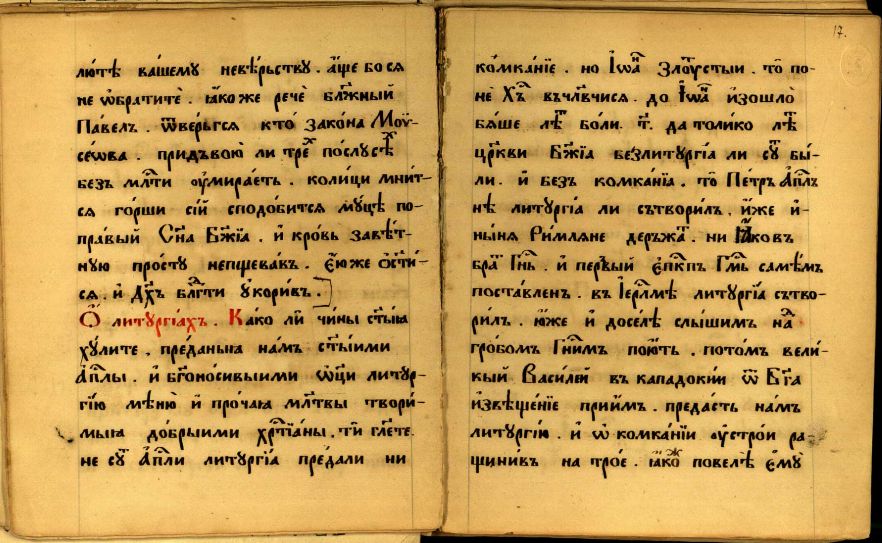 лю́тѣ ва́шему невѣ́рьству . а́ще бо ся
не ѡ҆брати́те . ꙗ҆́ко же речѐ бл҃же́нный
Па́велъ . ѿве́ргься кто̀ зако́на Мои҆-
се́ѡва . при двою̀ ли тре́хъ послусѣ́хъ
безъ мл҃сти ᲂу҆мира́етъ . коли́ци мни́т-
ся го́рши сі́й сподо́бится му́цѣ по-
пра́вый Сн҃а Бж҃їа . и҆ кро́вь завѣ́т-
ную про́сту непщева́въ . е҆́ю же ѡ҆ст҃и́-
ся . и҆ Дх҃ъ бл҃гти укори́въ .
Ѽ литургі́ахъ . Ка́ко ли̑ чи́ны ст҃ы́ꙗ
ху́лите . пре́даньна на́мъ ст҃ы́ими
А҆пⷭ҇лы . и҆ бг҃оноси́выими ѻ҆ц҃и литур-
гі́ю мѣню̀ и҆ про́чаꙗ мл҃твы твори́-
мыꙗ до́брыими хрⷭ҇тїа́ны . ти̑ гл҃ете .
не су́ть А҆пⷭ҇ли литургі́а пре́дали ни
17.
комка́нїе . но І҆ѡ҃а́ Злоу́стыи . то̑ по-
не́ Хⷭ҇а въчл҃вчися . до І҆ѡ҃а́ и҆зошло̀
бя́ше лѣ́ть бо́ли т҃. да толи́ко лѣ́ть
цр҃кви Бж҃їа безлитургі́а ли су́ть бы́-
ли . и҆ безъ комка́нїа . то̑ Пе́тръ А҆пⷭ҇лъ
нѣ литургі́а ли сътвори́лъ . и҆́же и҆-
ны́ня Ри́мляне де́ржать . ни І҆а́ковъ
бра́ Гн҃ь . и҆ пе́рвый є҆пⷭ҇кпъ Гмⷭ҇ь самѣ́мъ
поста́вленъ . въ І҆ерⷭ҇лмѣ литургі́а сътво-
ри́лъ . ю҆́же и҆ досе́лѣ слы́шимъ над
гро́бомъ Гн҃имъ пою́ть . пото́мъ вели́-
кый Васи́лей въ кападокі́и ѿ Бг҃а
и҆звѣще́нїе прии́мъ . преда́сть на́мъ
литургі́ю . и҆ ѡ҆ комка́нїи ᲂу҆стро́и ра-
щини́въ на тро́е . ꙗ҆́коже повелѣ̀ є҆му̀